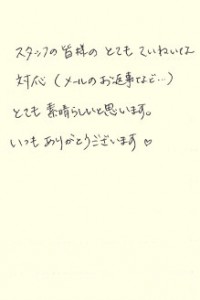 スタッフの皆様の とても ていねいな
対応（メールのお返事など…）
とても 素晴らしいと思います。
いつも ありがとうございます♡